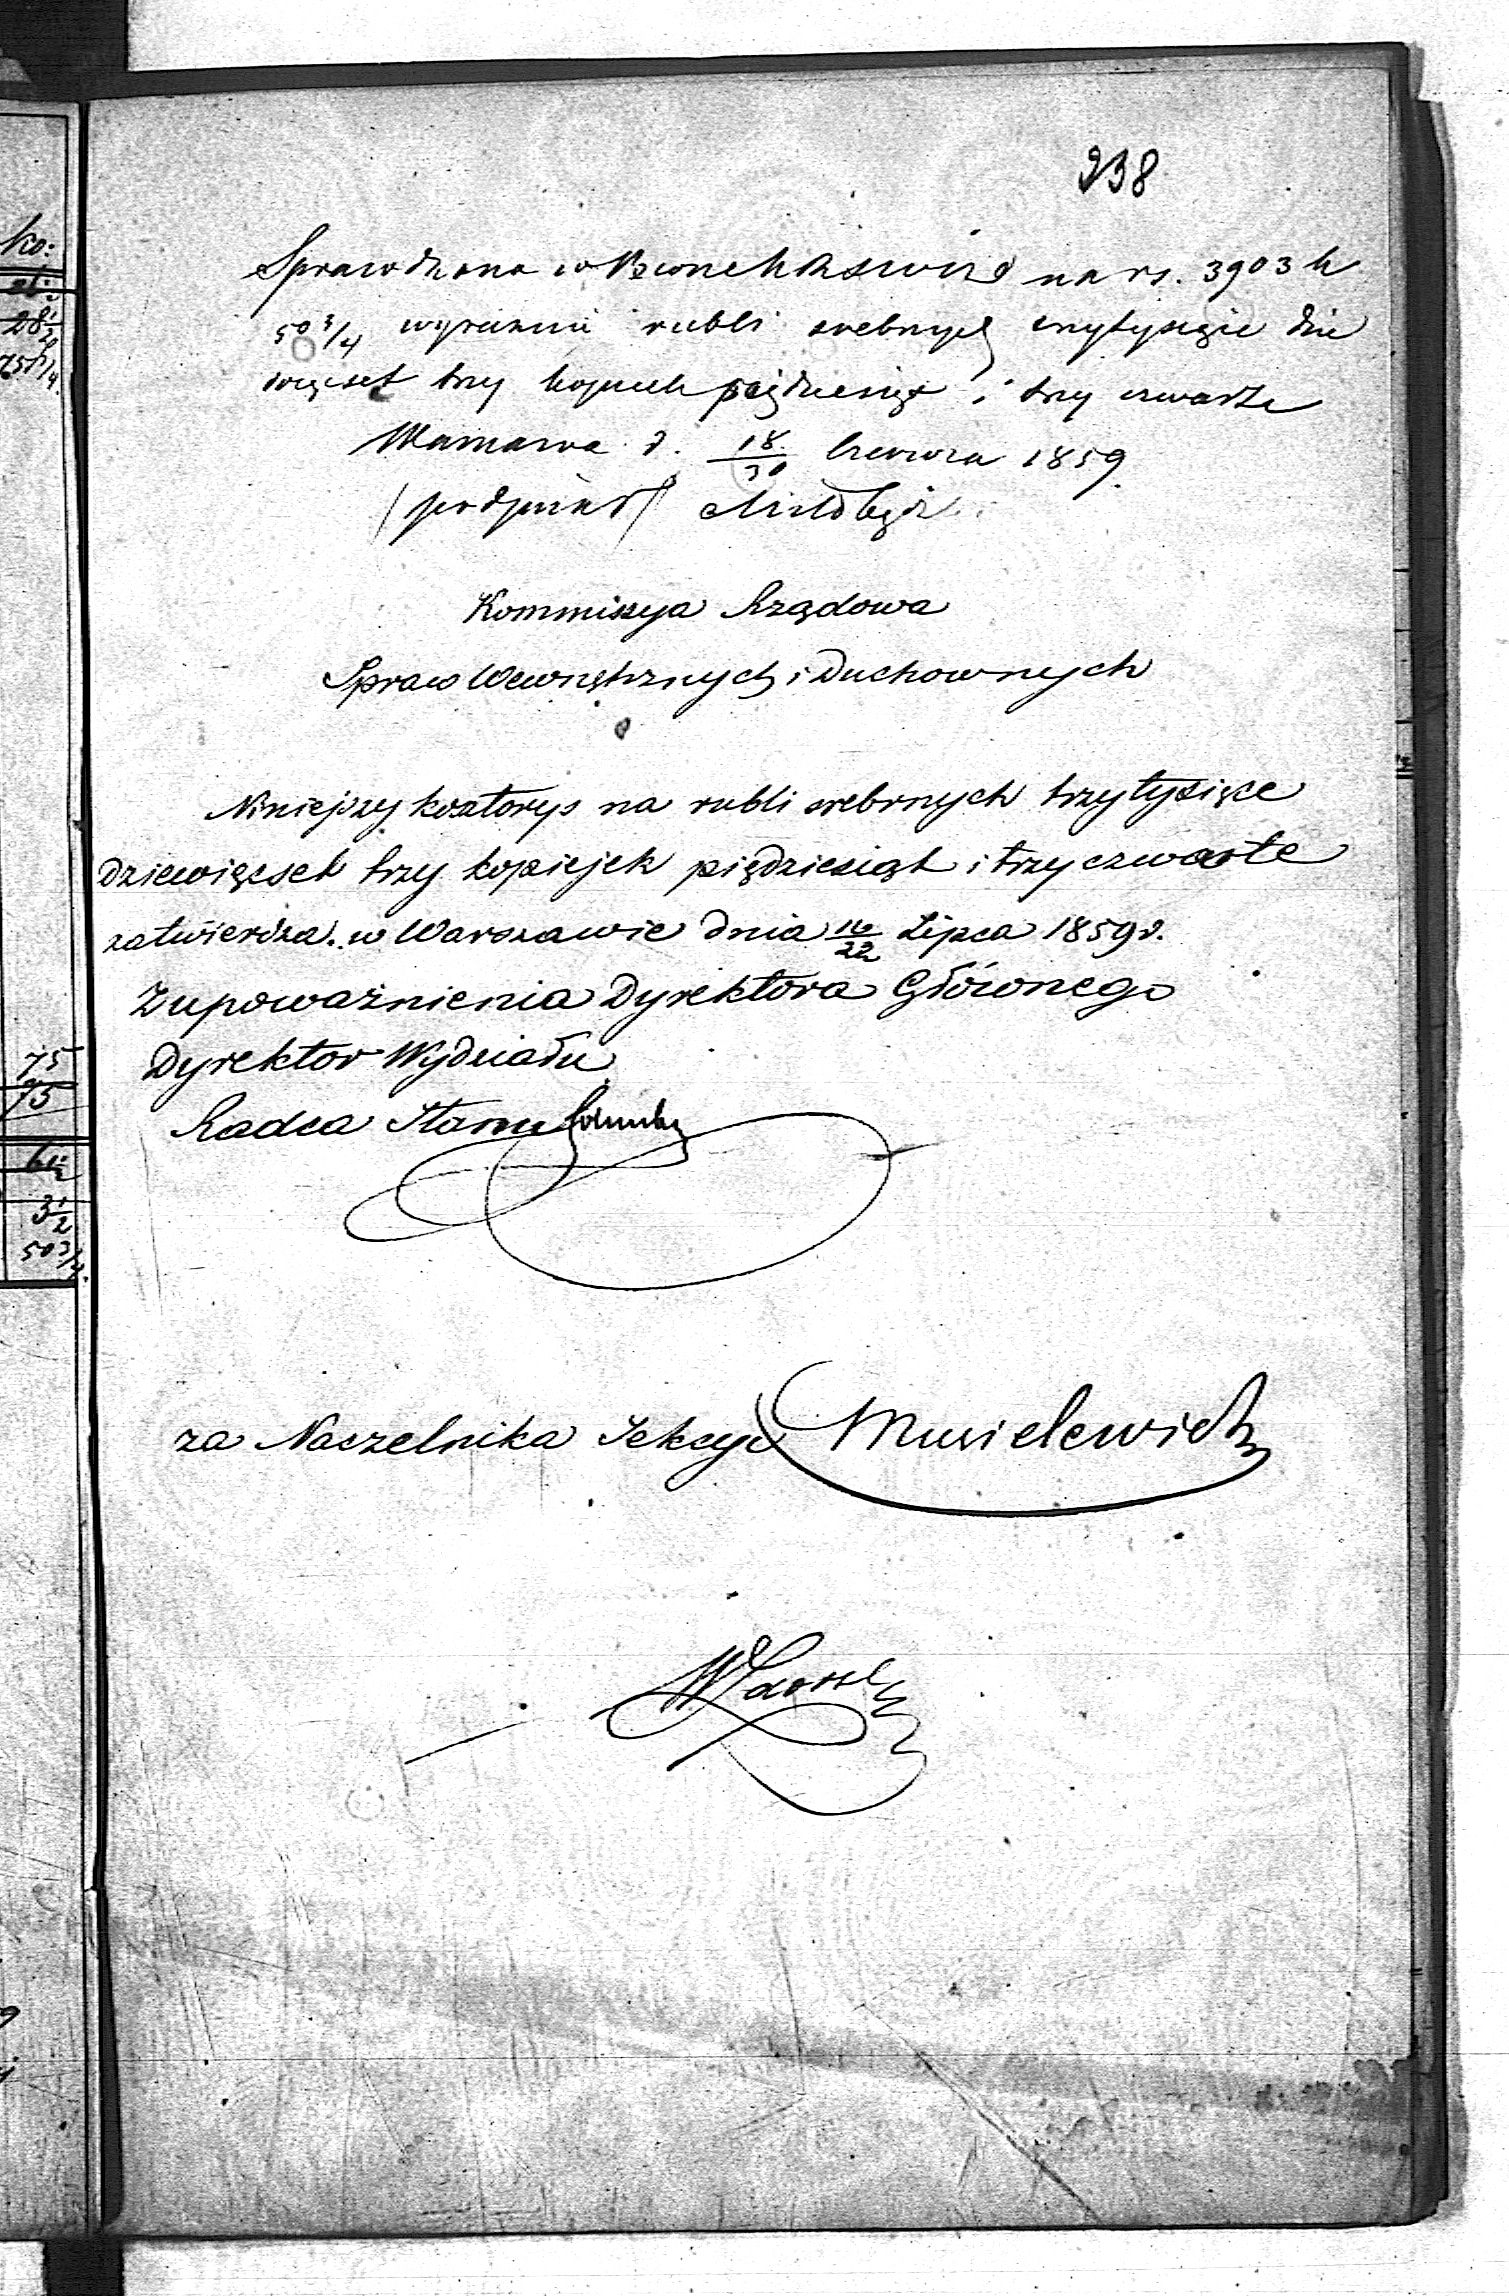 238
Sprawdzono w na rs. 3903 k
50 3/4 wyraźnie rubli srebrnych trzytysiące dzie
więcset trzy kopiejek pięćdziesiąt i trzy czwarte
Warszawa d. 18/30 Czerwca 1859
/podpisał/
Kommissya Rządowa
Spraw Wewnętrznych i Duchownych
Niniejszy kosztorys na rubli srebrnych trzytysiące
dziewięcset trzy kopiejek piędziesiąt i trzy czwarte
zatwierdza. w Warszawie dnia 10/22 Lipca 1859 r.
Z upoważnienia Dyrektora Głównego
Dyrektor Wydziału
Radca Stanu
za Naczelnika Sekcyi Musielewicz
ko:
28 1/2
75
75
3 1/2
50 3/4.